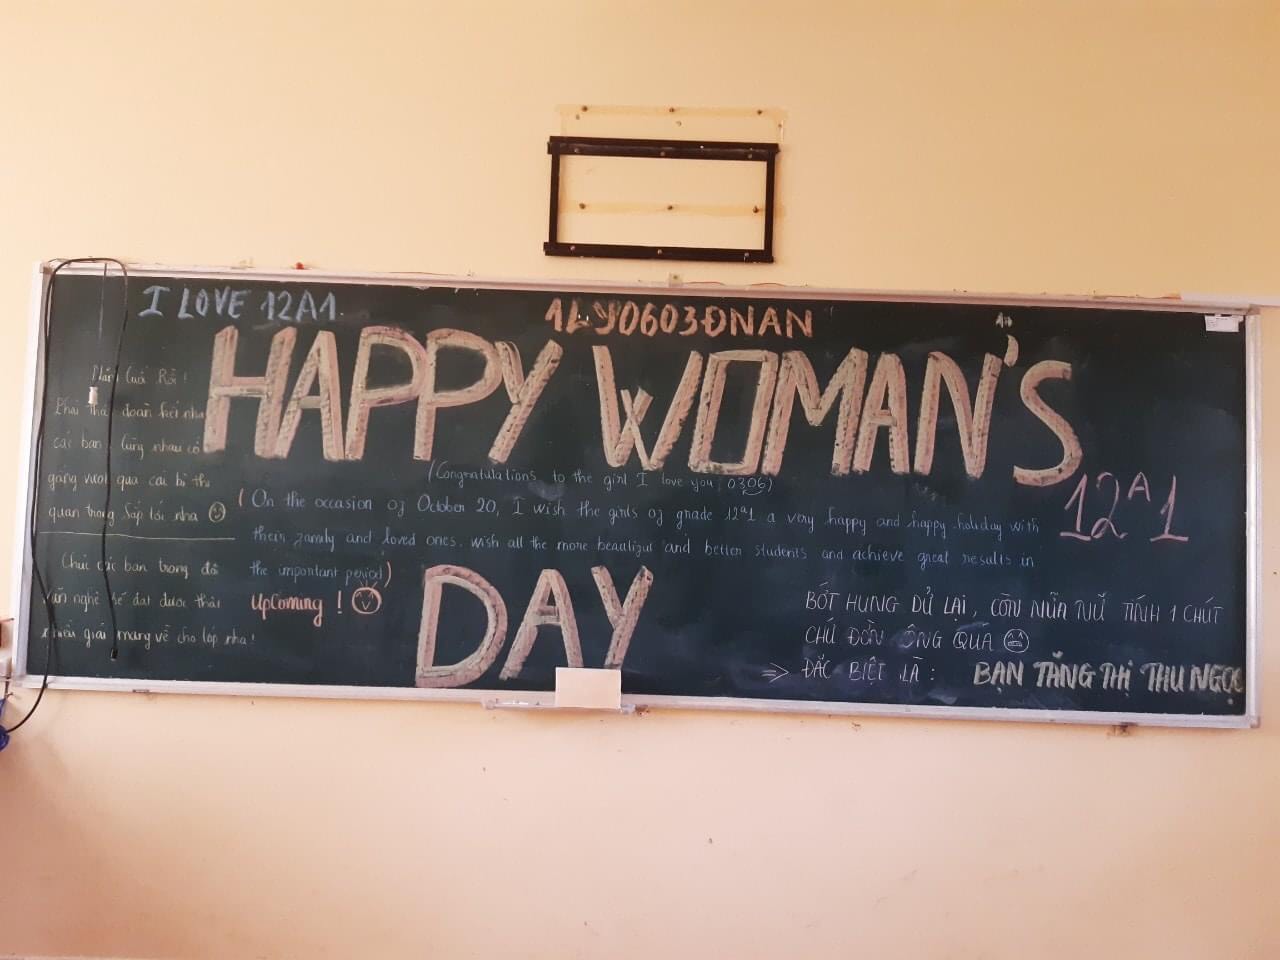 I LOVE 12A1.
1LY0603ĐNAN
HAPPY WOMAN'S
DAY
12A1
Năm Cuối Rồi!
Phải thật đoàn kết nha
các bạn. Cùng nhau cố
gắng vượt qua cái kì thi
quan trọng sắp tới nha
Chúc các bạn trong đội
văn nghệ sẽ đạt được thật
nhiều giải mang về cho lớp nha!
(Congratulations to the girl I love you 0306)
(On the occasion of October 20, I wish the girls of grade 12a1 a very happy and happy holiday with
their family and loved ones. wish all the more beautiful and better students and achieve great results in
the important period)
UpComing!
BỚT HUNG DỮ LẠI, CÒN NỮA NỮ TÍNH 1 CHÚT
CHỨ ĐÒN ÔNG QUÁ
⇒ ĐẶC BIỆT LÀ: BẠN TĂNG THỊ THU NGỌC